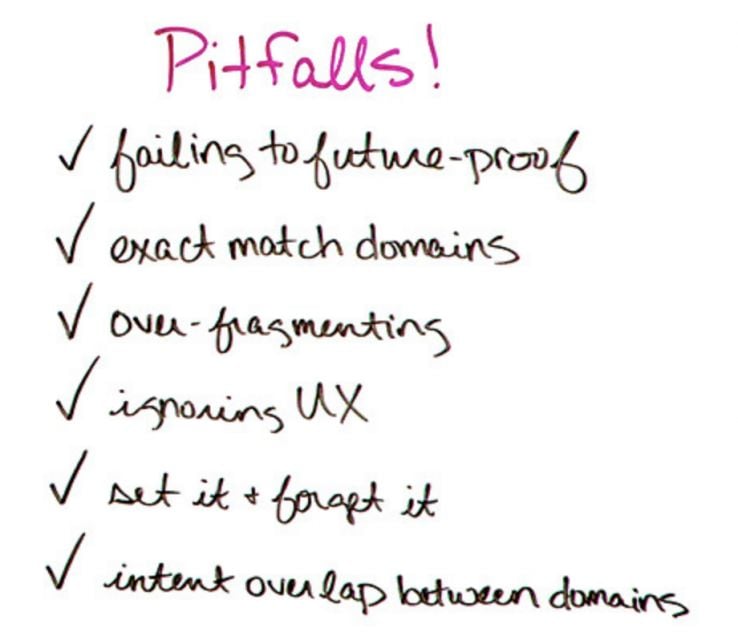 Pitfalls!
✓ failing to future-proof
✓ exact match domains
✓ over-fragmenting
✓ ignoring UX
✓ set it + forget it
✓ intent overlap between domains